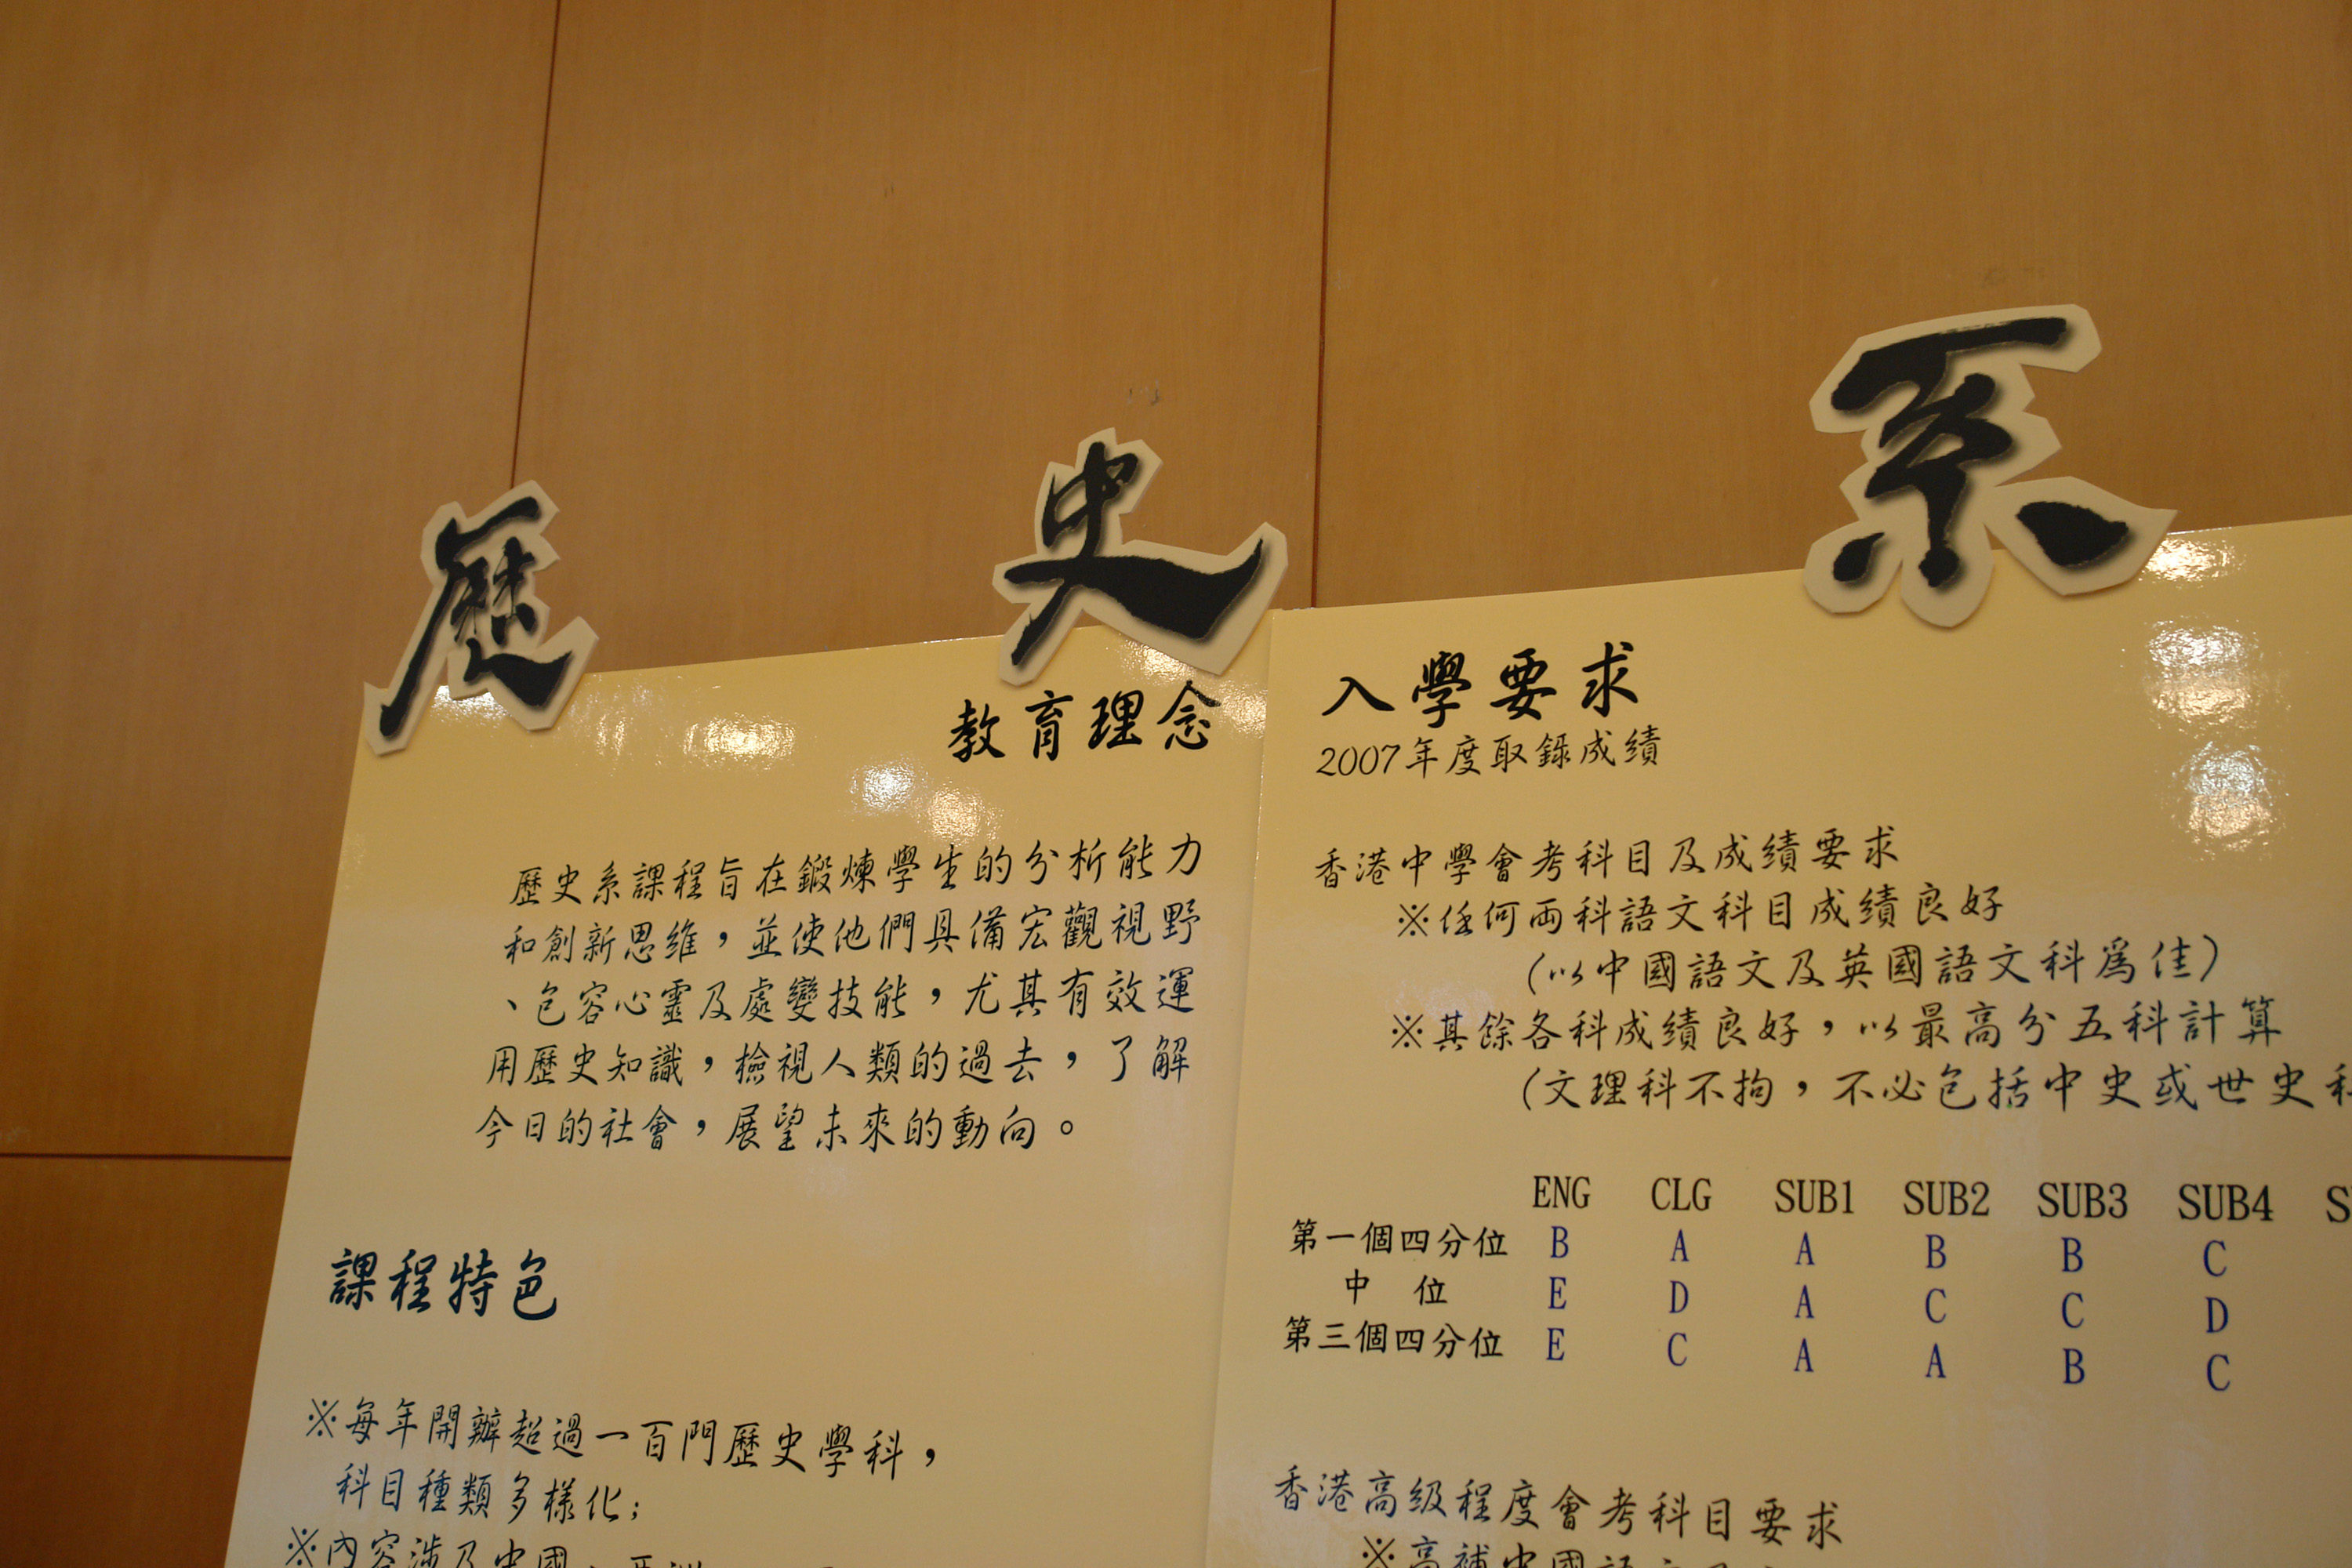 歷史系
教育理念
歷史系課程旨在鍛煉學生的分析能力
和創新思維，並使他們具備宏觀視野
、包容心靈及處變技能，尤其有效運
用歷史知識，檢視人類的過去，了解
今日的社會，展望未來的動向。
課程特色
※每年開辦超過一百門歷史學科，
科目種類多樣化；
※內容涉及中國、亞洲
入學要求
2007年度取錄成績
香港中學會考科目及成績要求
※任何兩科語文科目成績良好
(以中國語文及英國語文科為佳)
※其餘各科成績良好，以最高分五科計算
(文理科不拘，不必包括中史或世史科
ENG CLG SUB1 SUB2 SUB3 SUB4
第一個四分位 B A A B B C
中 位 E D A C C D
第三個四分位 E C A A B C
香港高級程度會考科目要求
※高補中國語文及